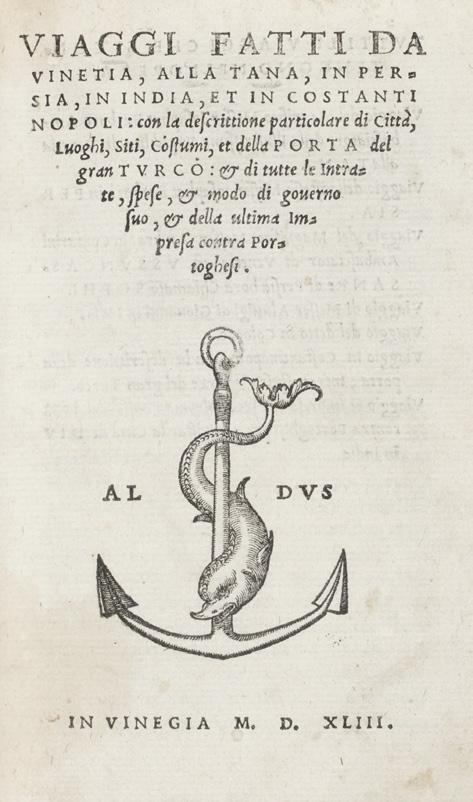 VIAGGI FATTI DA
VINETIA, ALLA TANA, IN PER=
SIA, IN INDIA, ET IN COSTANTI
NOPOLI: con la deſcrittione particolare di Città,
Luoghi, Siti, Coſtumi, et della PORTA del
gran TVRCO: & di tutte le Intra=
te, ſpeſe, & modo di gouerno
ſuo, & della ultima Im=
preſa contra Por=
togheſi.
AL DVS
IN VINEGIA M. D. XLIII.